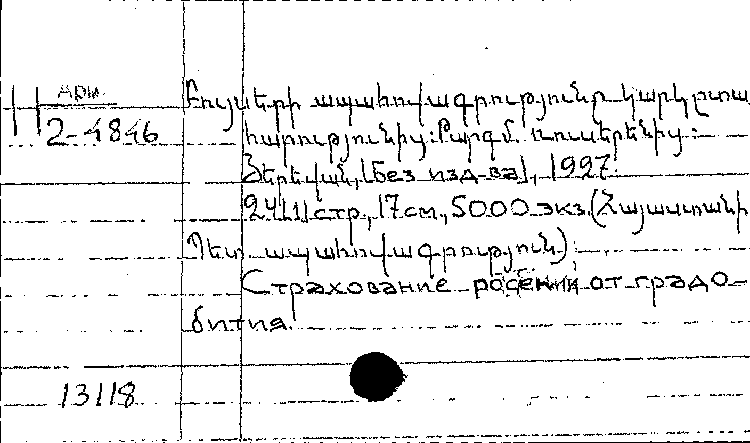 Арм.
2-4846
Բույսերի ապահովագրությունը կարկտա
հարությունից: Թարգմ. ռուսերենից:
Երևան, [без изд-ва], 1927.
24[1] стр., 17 см., 5000 экз. (Հայաստանի
Պետ. ապահովագրություն);
Страхование растений от градо-
бития.
13118